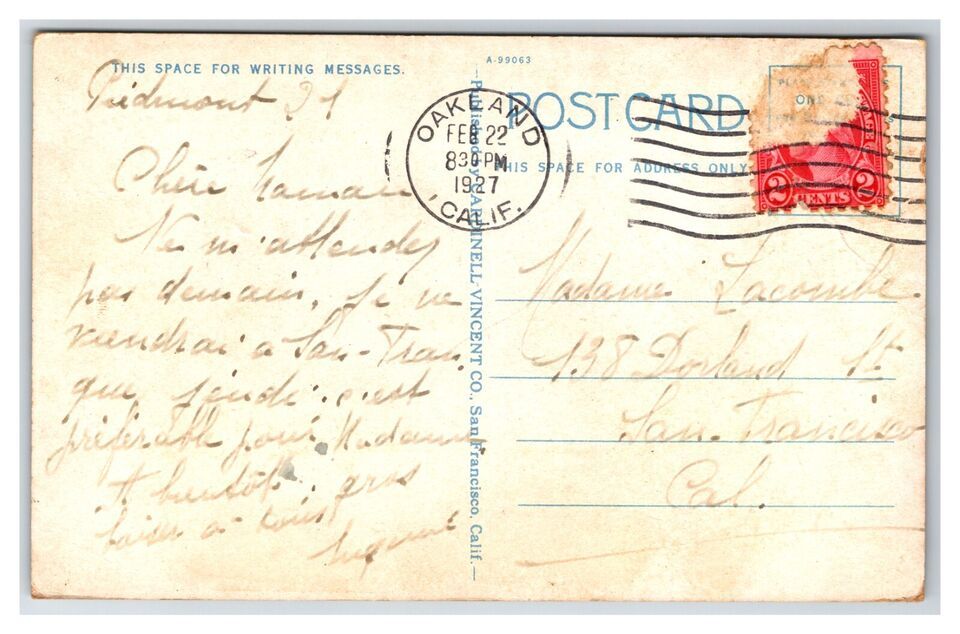 THIS SPACE FOR WRITING MESSAGES.
A-99063
POST CARD
THIS SPACE FOR ADDRESS ONLY
OAKLAND
FEB 22
830 PM
1927
CALIF.
2 CENTS 2
Piedmont 21
Chère Maman
Ne m'attendez
pas demain, je ne
viendrai à San-Fran
que jeudi; c'est
préférable pour Madame
A bientôt; gros
baiser à tous
—Published by CARDINELL-VINCENT CO., San Francisco, Calif.—
Madame Lacombe
138 Dorland St
San-Francisco
Cal.